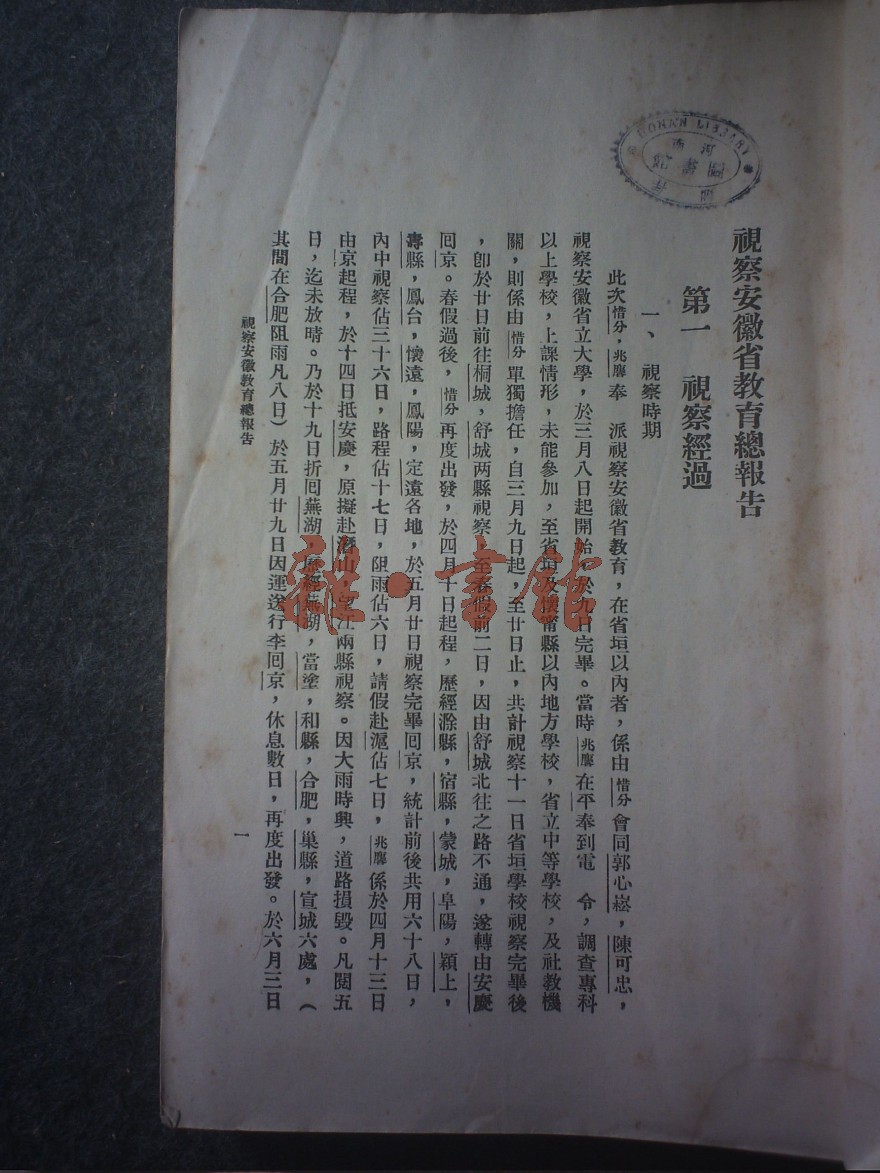 視察安徽省教育總報告
第一 視察經過
一、視察時期
此次惜分,兆麐奉 派視察安徽省教育,在省垣以內者,係由惜分會同郭心崧,陳可忠,
視察安徽省立大學,於三月八日起開始,於九日完畢。當時兆麐在平奉到電 令,調查專科
以上學校,上課情形,未能參加,至省垣及懷甯縣以內地方學校,省立中等學校,及社教機
關,則係由惜分單獨擔任,自三月九日起,至廿日止,共計視察十一日省垣學校視察完畢後
,卽於廿日前往桐城,舒城两縣視察,至春假前二日,因由舒城北往之路不通,遂轉由安慶
回京。春假過後,惜分再度出發,於四月十日起程,歷經滁縣,宿縣,蒙城,阜陽,潁上,
壽縣,鳳台,懷遠,鳳陽,定遠各地,於五月廿日視察完畢回京,統計前後共用六十八日,
內中視察佔三十六日,路程佔十七日,阻雨佔六日,請假赴滬佔七日,兆麐係於四月十三日
由京起程,於十四日抵安慶,原擬赴潛山,望江兩縣視察。因大雨時興,道路損毀。凡閱五
日,迄未放晴。乃於十九日折回蕪湖,歷經蕪湖,當塗,和縣,合肥,巢縣,宣城六處,(
其間在合肥阻雨凡八日)於五月廿九日因運送行李回京,休息數日,再度出發。於六月三日
視察安徽教育總報告
一
HONAN LIBRARY
河南
圖書館
雜·書館